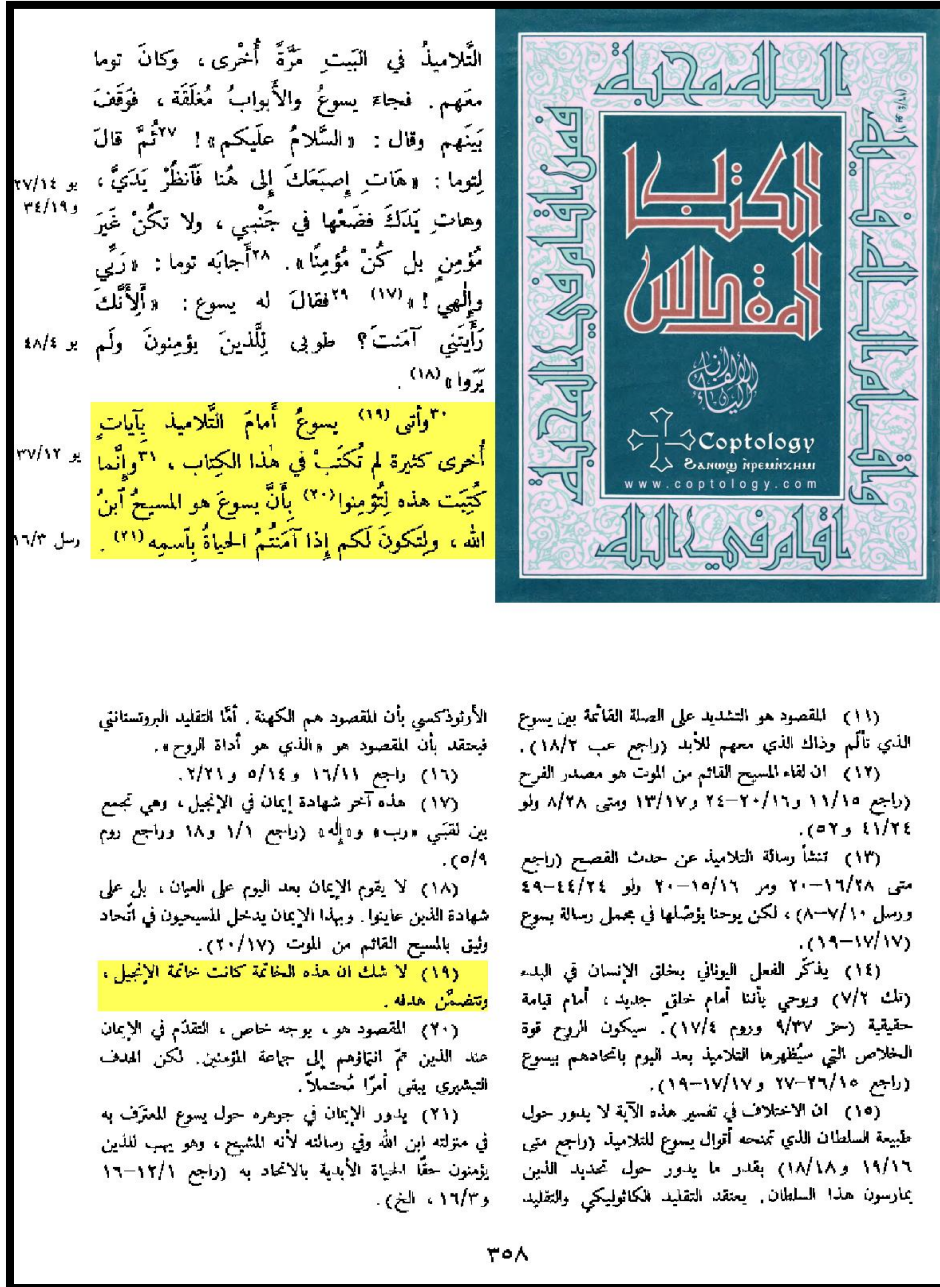 التَّلاميذُ في البَيتِ مَرَّةً أُخْرى ، وَكانَ توما
معَهم . فجاءَ يسوعُ والأَبوابُ مُغلَقَة ، فوَقَفَ
بَينَهم وقال : «السَّلامُ علَيكم» ! ٢٧ثُمَّ قالَ
لِتوما : «هَاتِ إِصبَعَكَ إِلى هُنا فَٱنظُرْ يَدَيَّ ،
وهاتِ يَدَكَ فضَعْها في جَنْبي ، ولا تكُنْ غَيرَ
مُؤمِنٍ بل كُنْ مُؤمِنًا» . ٢٨أَجابَه توما : «رَبِّي
وإِلٰهي !» (١٧) ٢٩فقالَ له يسوع : «أَلِأَنَّكَ
رَأَيتَني آمَنتَ ؟ طوبى لِلَّذينَ يؤمِنونَ ولَم
يَرَوا» (١٨) .
٣٠وأتى (١٩) يسوعُ أَمامَ التَّلاميذ بِآياتٍ
أُخرى كثيرة لم تُكتَبْ في هٰذا الكِتاب ، ٣١وإِنَّما
كُتِبَت هذه لِتُؤمِنوا (٢٠) بِأَنَّ يسوعَ هو المسيحُ ٱبنُ
الله ، ولِتَكونَ لَكم إِذا آمَنتُمُ الحياةُ بِٱسمِه (٢١) .
يو ٢٧/١٤
و ٣٤/١٩
يو ٤٨/٤
يو ٣٧/١٢
رسل ١٦/٣
الله محبة
فمن اقام في المحبة
اقام في الله
واقام الله فيه
(١ يو ٤ : ١٦)
الكتاب
المقدس
Coptology
www.coptology.com
(١١) المقصود هو التشديد على الصلة القائمة بين يسوع
الذي تألّم وذاك الذي معهم للأبد (راجع عب ١٨/٢) .
(١٢) ان لقاء المسيح القائم من الموت هو مصدر الفرح
(راجع ١١/١٥ و ٢٠/١٦–٢٤ و ١٣/١٧ ومتى ٨/٢٨ ولو
٤١/٢٤ و ٥٢) .
(١٣) تنشأ رسالة التلاميذ عن حدث الفصح (راجع
متى ١٦/٢٨–٢٠ ومر ١٥/١٦–٢٠ ولو ٤٤/٢٤–٤٩
ورسل ٧/١٠–٨) ، لكن يوحنا يؤصّلها في مجمل رسالة يسوع
(١٧/١٧–١٩) .
(١٤) يذكّر الفعل اليوناني بخلق الإنسان في البدء
(تك ٧/٢) ويوحي بأننا أمام خلق جديد ، أمام قيامة
حقيقية (حز ٩/٣٧ وروم ١٧/٤) . سيكون الروح قوة
الخلاص التي سيُظهرها التلاميذ بعد اليوم باتحادهم بيسوع
(راجع ٢٦/١٥–٢٧ و ١٧/١٧–١٩) .
(١٥) ان الاختلاف في تفسير هذه الآية لا يدور حول
طبيعة السلطان الذي تمنحه أقوال يسوع للتلاميذ (راجع متى
١٩/١٦ و ١٨/١٨) بقدر ما يدور حول تحديد الذين
يمارسون هذا السلطان . يعتقد التقليد الكاثوليكي والتقليد
الأرثوذكسي بأن المقصود هم الكهنة . أمّا التقليد البروتستانتي
فيعتقد بأن المقصود هو «الذي هو أداة الروح» .
(١٦) راجع ١٦/١١ و ٥/١٤ و ٢/٢١ .
(١٧) هذه آخر شهادة إيمان في الإنجيل ، وهي تجمع
بين لقبَي «رب» و «إله» (راجع ١/١ و ١٨ وراجع روم
٥/٩) .
(١٨) لا يقوم الإيمان بعد اليوم على العيان ، بل على
شهادة الذين عاينوا . وبهذا الإيمان يدخل المسيحيون في اتّحاد
وثيق بالمسيح القائم من الموت (٢٠/١٧) .
(١٩) لا شك ان هذه الخاتمة كانت خاتمة الإنجيل ،
وتتضمّن هدفه .
(٢٠) المقصود هو ، بوجه خاص ، التقدّم في الإيمان
عند الذين تمّ انتماؤهم إلى جماعة المؤمنين . لكن الهدف
التبشيري يبقى أمرًا مُحتملاً .
(٢١) يدور الإيمان في جوهره حول يسوع المعترَف به
في منزلته ابن الله وفي رسالته لأنه المشيح ، وهو يهب للذين
يؤمنون حقًّا الحياة الأبدية بالاتحاد به (راجع ١٢/١–١٦
و ١٦/٣ ، الخ) .
٣٥٨